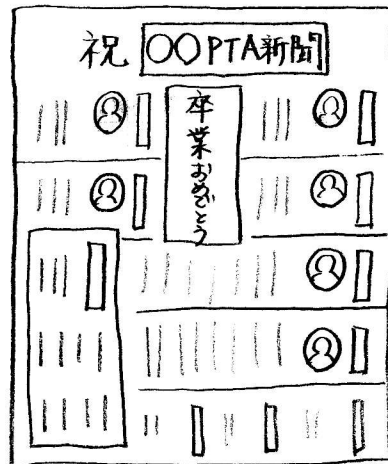 祝 〇〇PTA新聞
卒業おめでとう